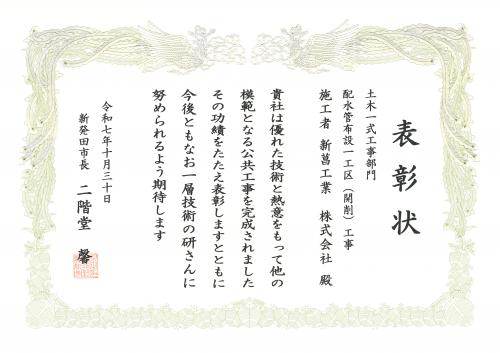 表彰状
土木一式工事部門
配水管布設一工区（開削）工事
施工者 新菖工業 株式会社 殿
貴社は優れた技術と熱意をもって他の
模範となる公共工事を完成されました
その功績をたたえ表彰しますとともに
今後ともなお一層技術の研さんに
努められるよう期待します
令和七年十月三十日
新発田市長 二階堂 馨